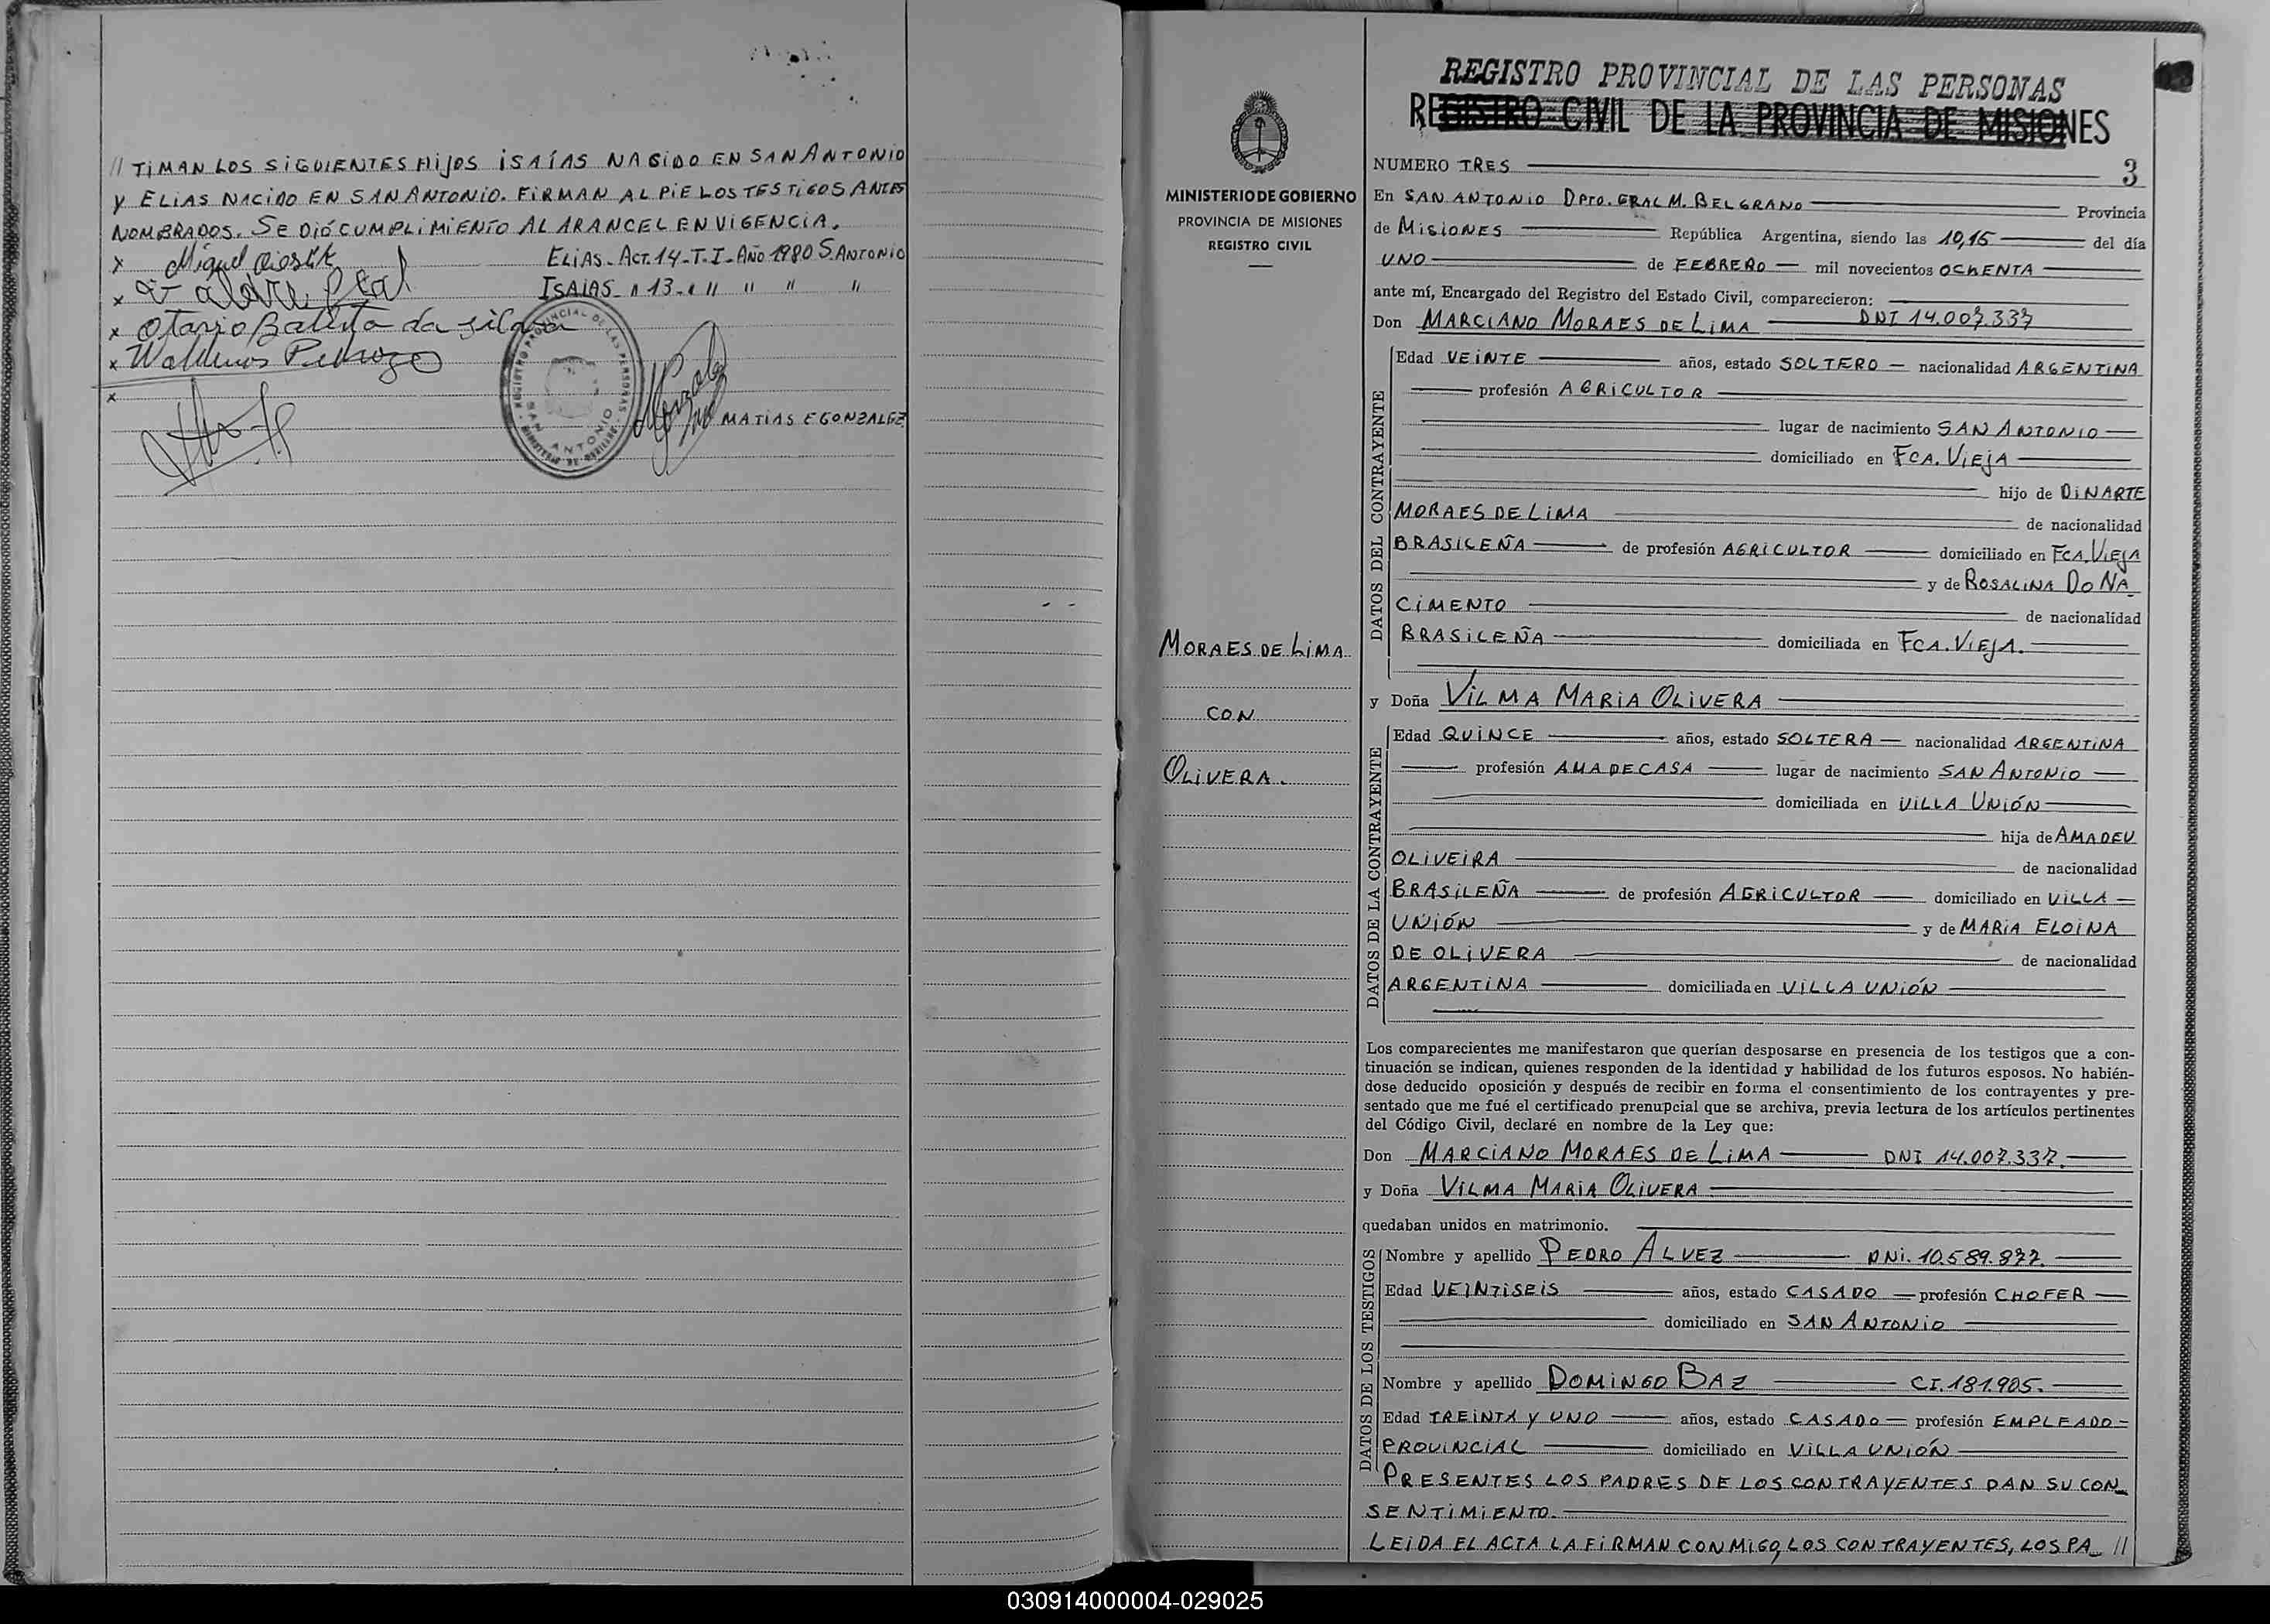 // TIMAN LOS SIGUIENTES HIJOS ISAÍAS NACIDO EN SAN ANTONIO
Y ELIAS NACIDO EN SAN ANTONIO. FIRMAN AL PIE LOS TESTIGOS ANTES
NOMBRADOS. SE DIÓ CUMPLIMIENTO AL ARANCEL EN VIGENCIA.
x Miguel
ELIAS - ACT. 14 - T. I - AÑO 1980 S. ANTONIO
x
ISAIAS " 13 - " " " " "
x Otavio Batista da silva
x Waldemos Pedrozo
x
REGISTRO PROVINCIAL DE LAS PERSONAS
SAN ANTONIO
MATIAS E GONZALEZ
MINISTERIO DE GOBIERNO
PROVINCIA DE MISIONES
REGISTRO CIVIL
MORAES DE LIMA
CON
OLIVERA.
REGISTRO PROVINCIAL DE LAS PERSONAS
REGISTRO CIVIL DE LA PROVINCIA DE MISIONES
NUMERO TRES
3
En SAN ANTONIO DPTO. GRAL M. BELGRANO Provincia
de MISIONES República Argentina, siendo las 10,15 del día
UNO de FEBRERO mil novecientos OCHENTA
ante mí, Encargado del Registro del Estado Civil, comparecieron:
Don MARCIANO MORAES DE LIMA DNI 14.007.337
DATOS DEL CONTRAYENTE
Edad VEINTE años, estado SOLTERO nacionalidad ARGENTINA
profesión AGRICULTOR
lugar de nacimiento SAN ANTONIO
domiciliado en FCA. VIEJA
hijo de DINARTE
MORAES DE LIMA de nacionalidad
BRASILEÑA de profesión AGRICULTOR domiciliado en FCA. VIEJA
y de ROSALINA DO NA-
CIMENTO de nacionalidad
BRASILEÑA domiciliada en FCA. VIEJA.
y Doña VILMA MARIA OLIVERA
DATOS DE LA CONTRAYENTE
Edad QUINCE años, estado SOLTERA nacionalidad ARGENTINA
profesión AMA DE CASA lugar de nacimiento SAN ANTONIO
domiciliada en VILLA UNIÓN
hija de AMADEU
OLIVEIRA de nacionalidad
BRASILEÑA de profesión AGRICULTOR domiciliado en VILLA
UNIÓN y de MARIA ELOINA
DE OLIVERA de nacionalidad
ARGENTINA domiciliada en VILLA UNIÓN
Los comparecientes me manifestaron que querían desposarse en presencia de los testigos que a con-
tinuación se indican, quienes responden de la identidad y habilidad de los futuros esposos. No habién-
dose deducido oposición y después de recibir en forma el consentimiento de los contrayentes y pre-
sentado que me fué el certificado prenupcial que se archiva, previa lectura de los artículos pertinentes
del Código Civil, declaré en nombre de la Ley que:
Don MARCIANO MORAES DE LIMA DNI 14.007.337.
y Doña VILMA MARIA OLIVERA
quedaban unidos en matrimonio.
DATOS DE LOS TESTIGOS
Nombre y apellido PEDRO ALVEZ DNI. 10.589.877.
Edad VEINTISEIS años, estado CASADO profesión CHOFER
domiciliado en SAN ANTONIO
Nombre y apellido DOMINGO BAZ CI. 181.905.
Edad TREINTA Y UNO años, estado CASADO profesión EMPLEADO-
PROVINCIAL domiciliado en VILLA UNIÓN
PRESENTES LOS PADRES DE LOS CONTRAYENTES DAN SU CON-
SENTIMIENTO.
LEIDA EL ACTA LA FIRMAN CONMIGO, LOS CONTRAYENTES, LOS PA- //
030914000004-029025